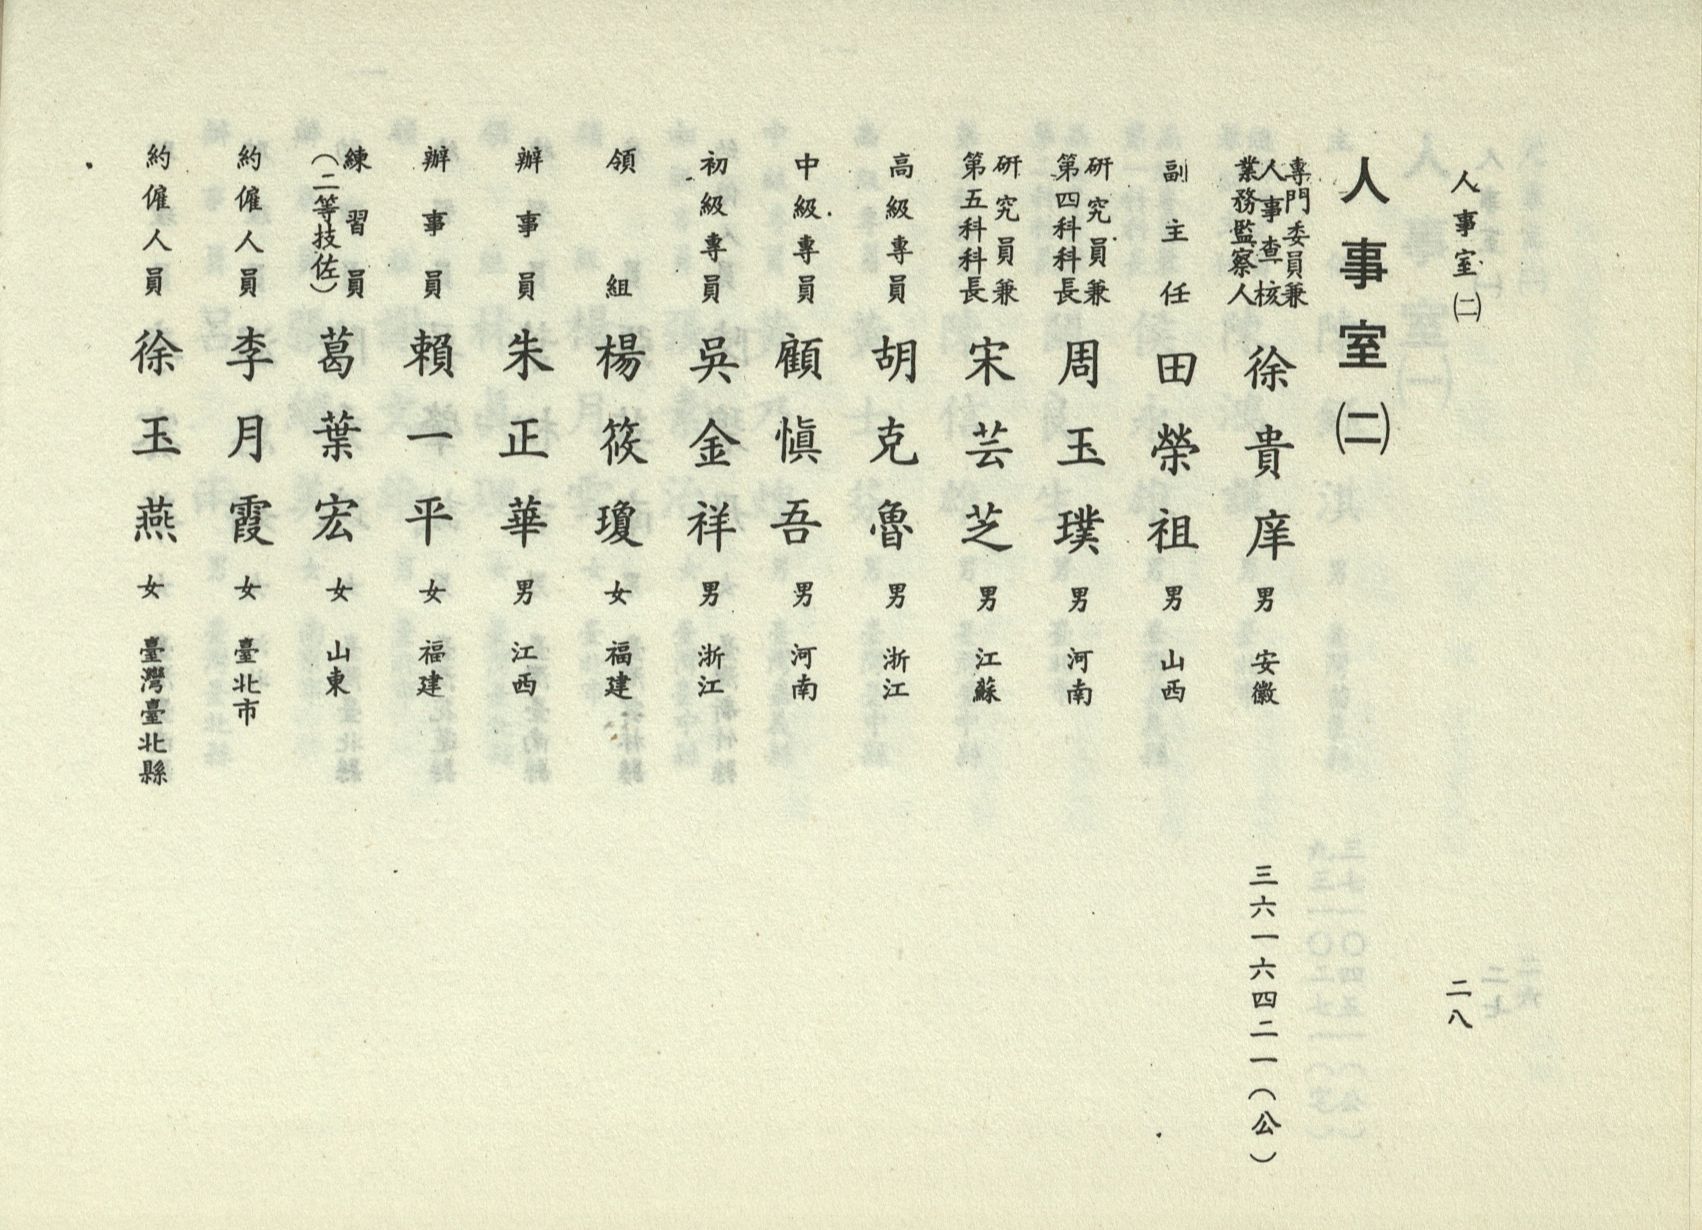 人事室㈡
二八
人事室㈡
專門委員兼
人事查核
業務監察人
徐貴庠 男 安徽 三六一六四二一（公）
副主任 田榮祖 男 山西
研究員兼
第四科科長
周玉璞 男 河南
研究員兼
第五科科長
宋芸芝 男 江蘇
高級專員 胡克魯 男 浙江
中級專員 顧愼吾 男 河南
初級專員 吳金祥 男 浙江
領組 楊筱瓊 女 福建
辦事員 朱正華 男 江西
辦事員 賴一平 女 福建
練習員
（二等技佐）
葛葉宏 女 山東
約僱人員 李月霞 女 臺北市
約僱人員 徐玉燕 女 臺灣臺北縣